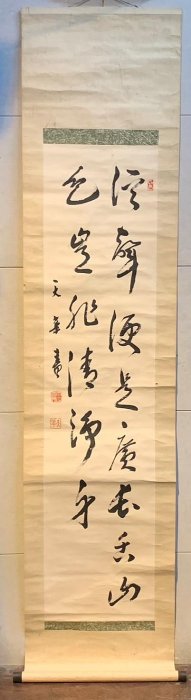 溪聲便是廣長舌山
色豈非清淨身